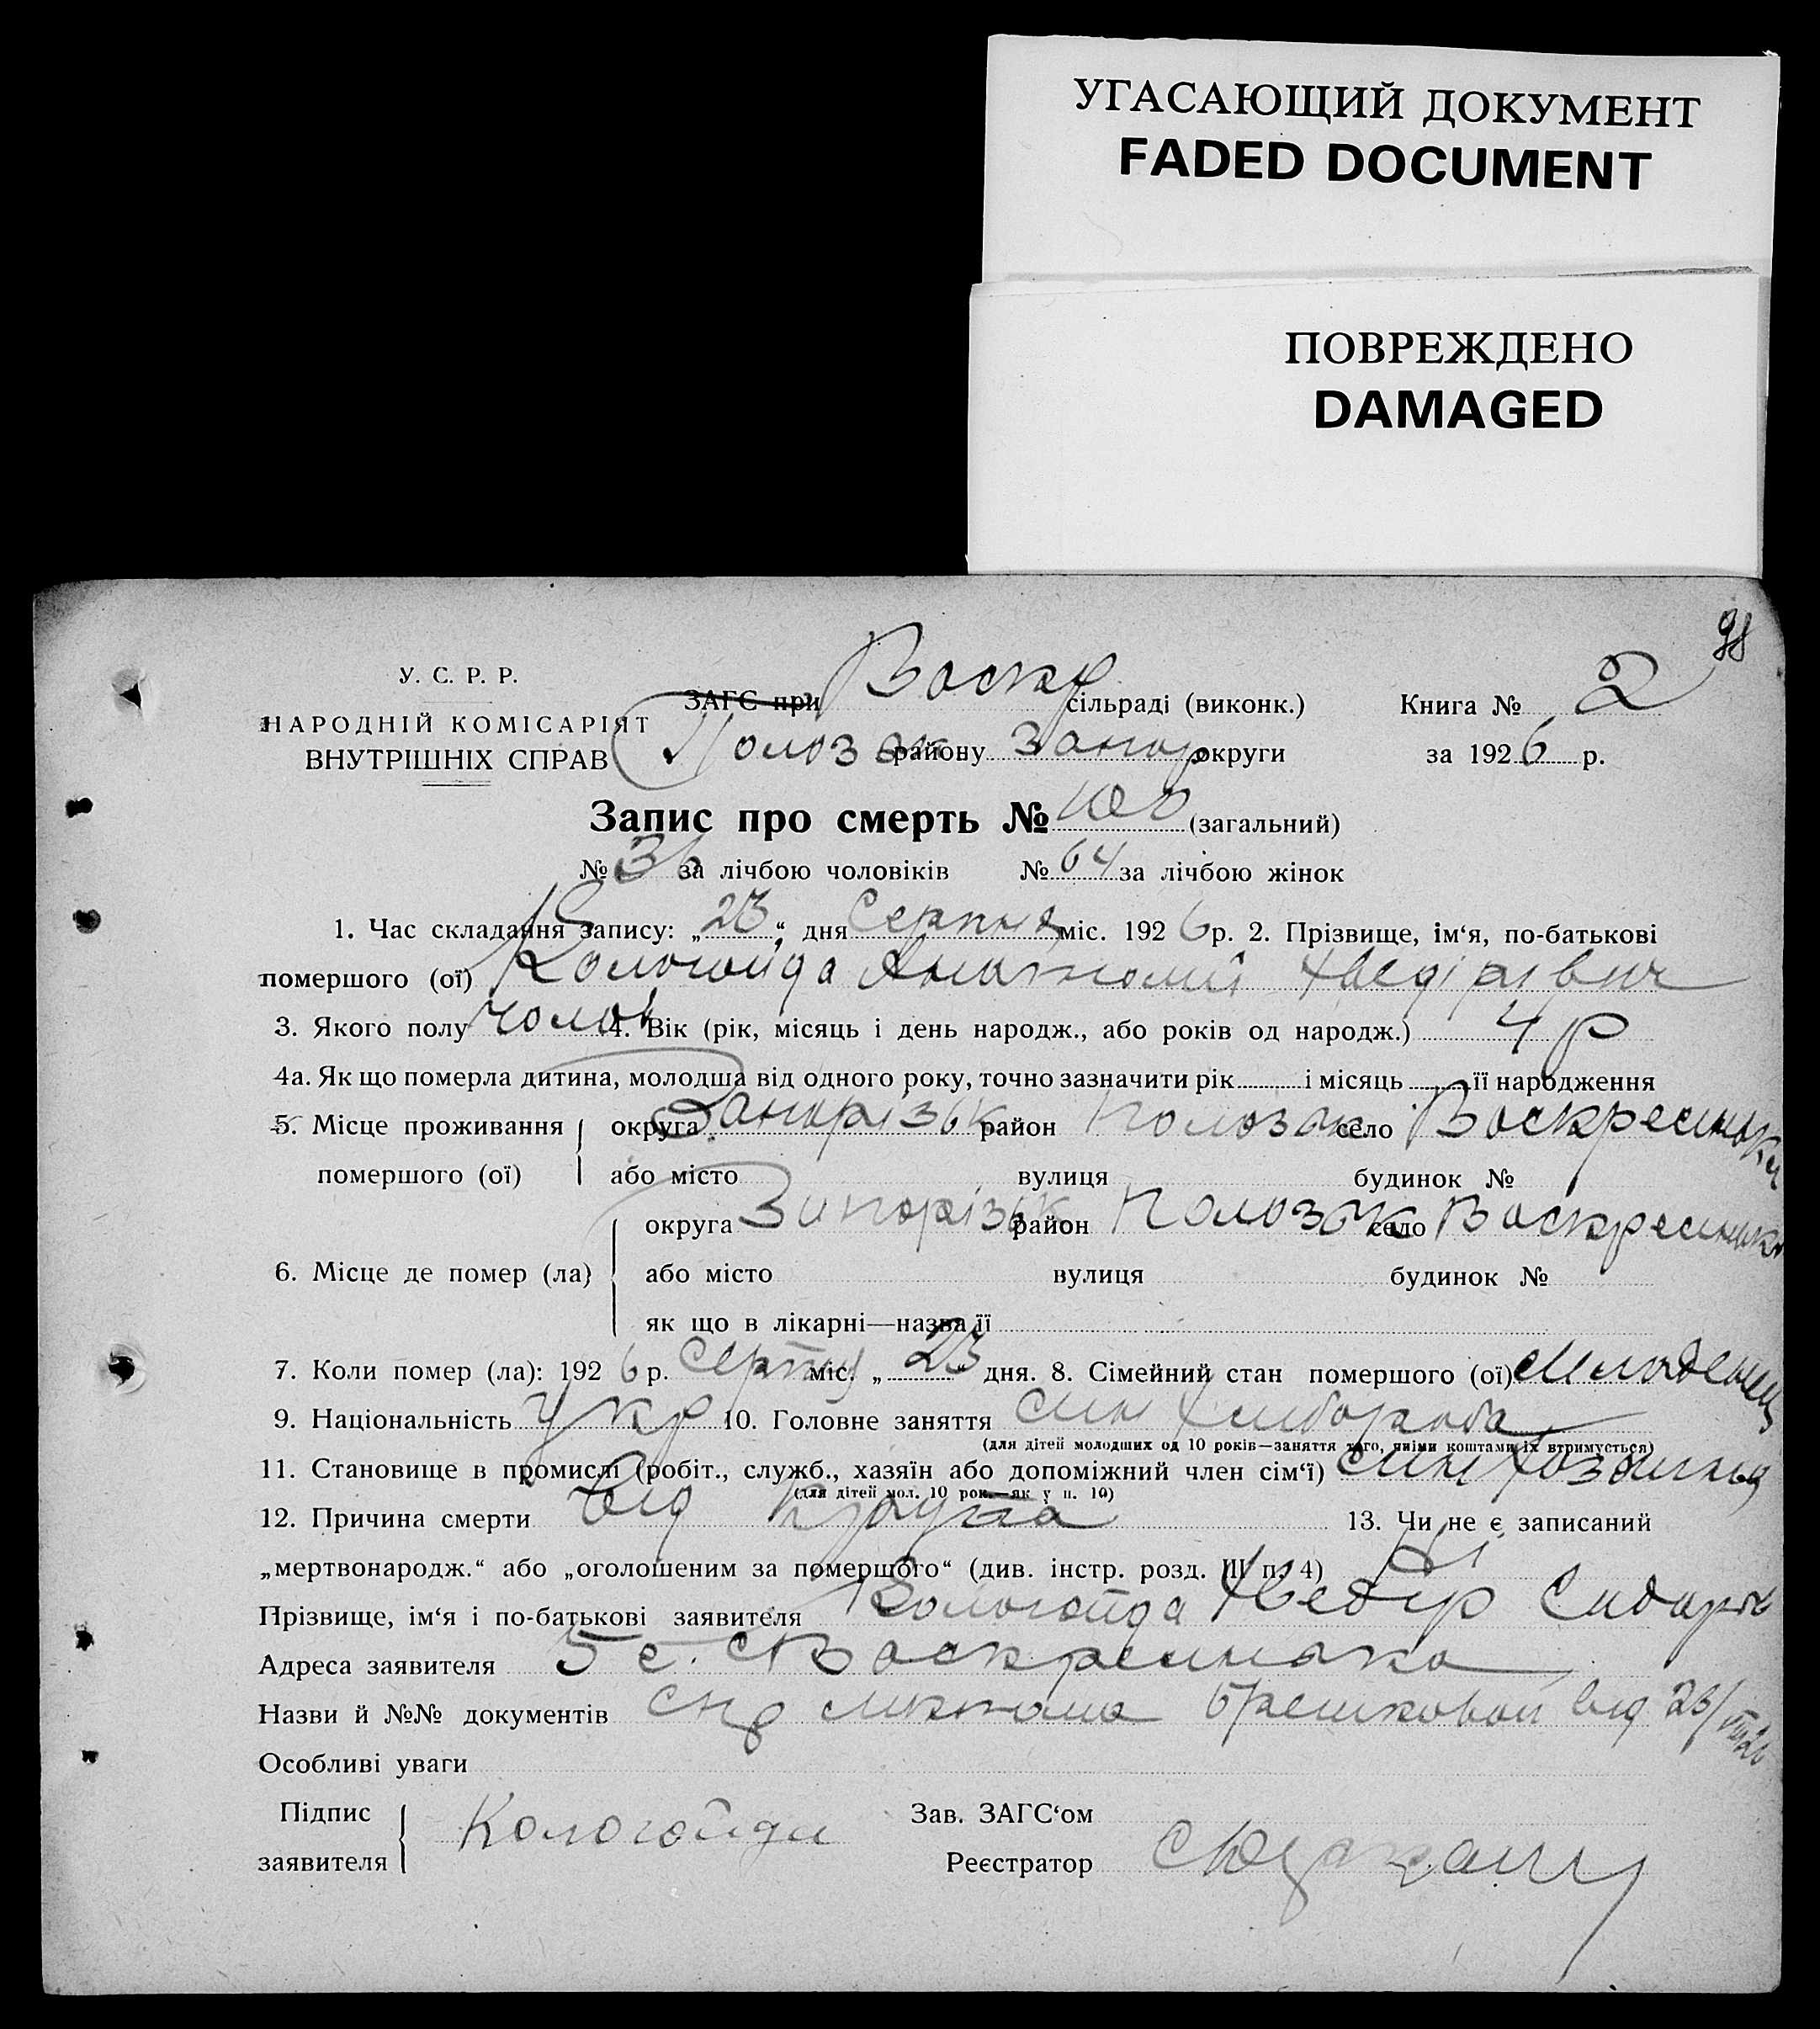 УГАСАЮЩИЙ ДОКУМЕНТ
FADED DOCUMENT
ПОВРЕЖДЕНО
DAMAGED
98
У. С. Р. Р.
НАРОДНІЙ КОМІСАРІЯТ
ВНУТРІШНІХ СПРАВ
ЗАГС при Воскр сільраді (виконк.) Книга № 2
Полозьк району Запор округи за 1926 р.
Запис про смерть № 100 (загальний)
№ 36 за лічбою чоловіків № 64 за лічбою жінок
1. Час складання запису: „23“ дня Серпня міс. 1926 р. 2. Прізвище, ім‘я, по-батькові
помершого (ої) Кологойда Анатолій Хведірович
3. Якого полу чолов 4. Вік (рік, місяць і день народж., або років од народж.) 4 р
4а. Як що померла дитина, молодша від одного року, точно зазначити рік і місяць її народження
5. Місце проживання округа Запорізьк район Полозьк село Воскресинька
помершого (ої) або місто вулиця будинок №
округа Запорізьк район Полозьк село Воскресинька
6. Місце де помер (ла) або місто вулиця будинок №
як що в лікарні—назва її
7. Коли помер (ла): 1926 р. Серпня міс. „23 дня. 8. Сімейний стан помершого (ої) Младенец
9. Національність Укр 10. Головне заняття син Хлібороба
(для дітей молодших од 10 років—заняття того, чиїми коштами їх втримується)
11. Становище в промислі (робіт., служб., хазяїн або допоміжний член сім‘ї) син Хозяїна
(для дітей мол. 10 рок.—як у п. 10)
12. Причина смерти Від Крупа 13. Чи не є записаний
„мертвонародж.“ або „оголошеним за помершого“ (див. інстр. розд. III п. 4) Ні
Прізвище, ім‘я і по-батькові заявителя Кологойда Хведір
Адреса заявителя с. Воскресинька
Назви й №№ документів від 23/VIII 26
Особливі уваги
Підпис Кологойди Зав. ЗАГС‘ом
заявителя Реєстратор